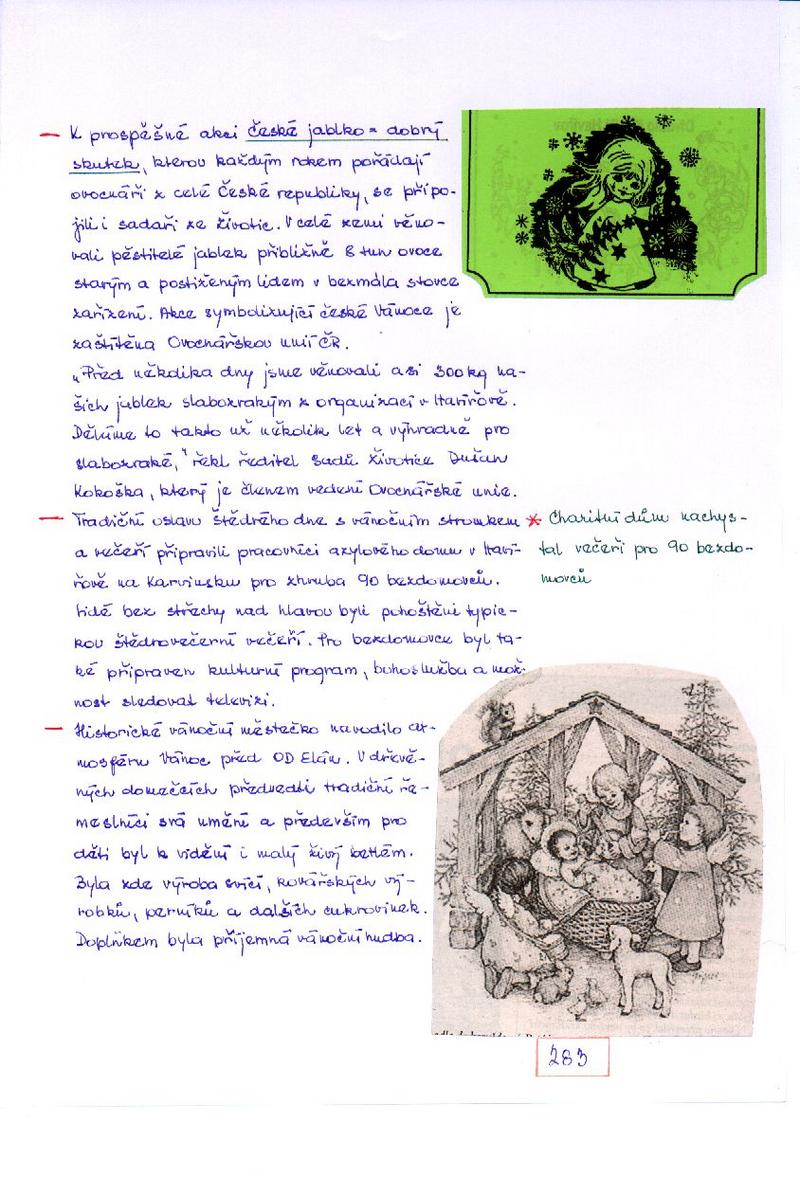 — K prospěšné akci České jablko = dobrý
skutek, kterou každým rokem pořádají
ovocnáři z celé České republiky, se připo-
jili i sadaři ze Životic. V celé zemi věno-
vali pěstitelé jablek přibližně 8 tun ovoce
starým a postiženým lidem v bezmála stovce
zařízení. Akce symbolizující české Vánoce je
zaštítěna Ovocnářskou unií ČR.
„Před několika dny jsme věnovali asi 300 kg na-
šich jablek slabozrakým z organizací v Havířově.
Děláme to takto už několik let a výhradně pro
slabozraké," řekl ředitel Sadů Životice Dušan
Kokoška, který je členem vedení Ovocnářské unie.
— Tradiční oslavu Štědrého dne s vánočním stromkem
a večeří připravili pracovníci azylového domu v Haví-
řově na Karvinsku pro zhruba 90 bezdomovců.
Lidé bez střechy nad hlavou byli pohoštěni typic-
kou štědrovečerní večeří. Pro bezdomovce byl ta-
ké připraven kulturní program, bohoslužba a mož-
nost sledovat televizi.
* Charitní dům nachys-
tal večeři pro 90 bezdo-
movců
— Historické vánoční městečko navodilo at-
mosféru Vánoc před OD Elán. V dřevě-
ných domečcích předvedli tradiční ře-
meslníci svá umění a především pro
děti byl k vidění i malý živý betlém.
Byla zde výroba svící, kovářských vý-
robků, perníků a dalších cukrovinek.
Doplňkem byla příjemná vánoční hudba.
283